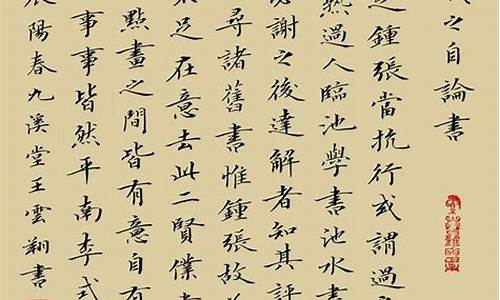 之自論書
之鍾張當抗行或謂過
熟過人臨池學書池水
謝之後達解者知其評
尋諸舊書惟鍾張故
足在意去此二賢僕
點畫之間皆有意自有
事事皆然平南李式
陽春九溪堂王雲翔書